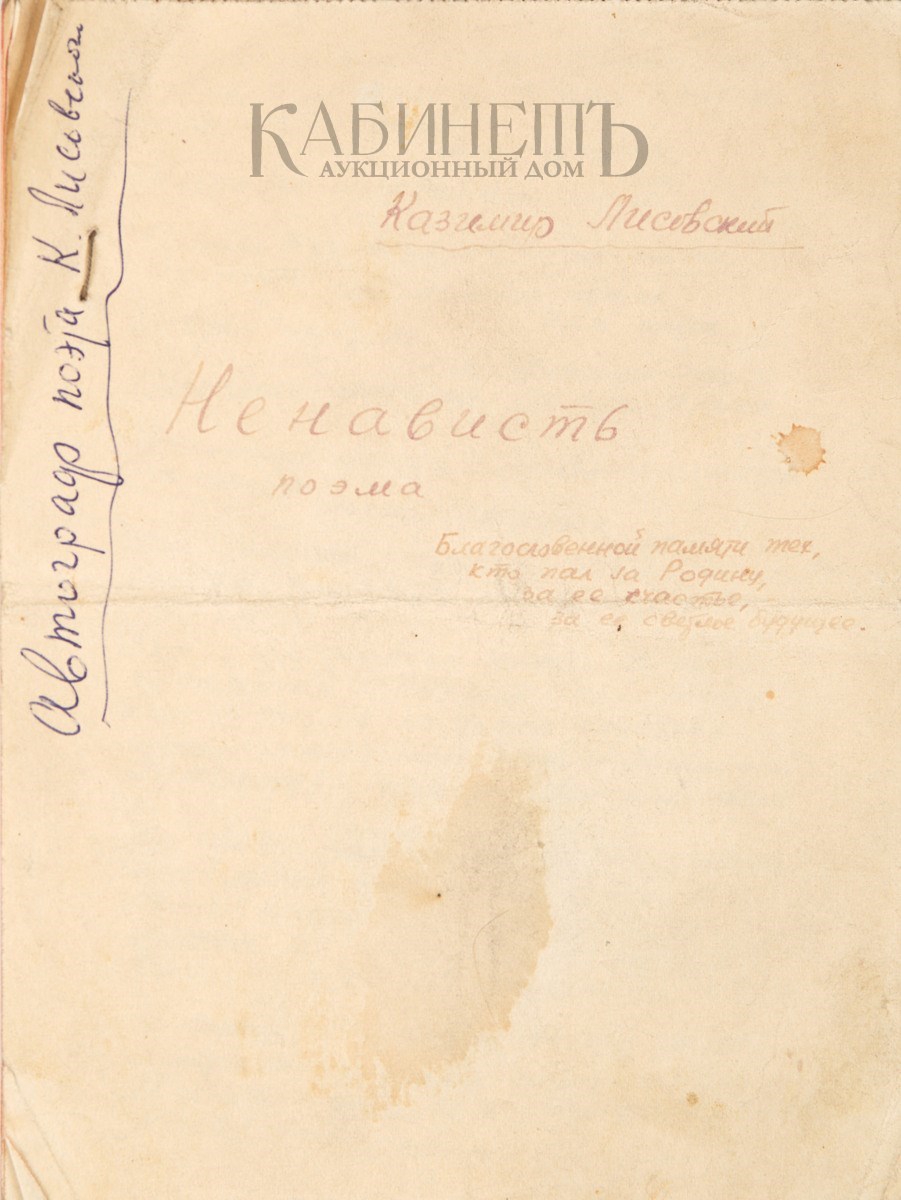 КАБИНЕТЪ
АУКЦИОННЫЙ ДОМ
Казимир Лисовский
Ненависть
поэма
Благословенной памяти тех,
кто пал за Родину,
за ее счастье,
за ее светлое будущее.
Автограф поэта К. Лисовского